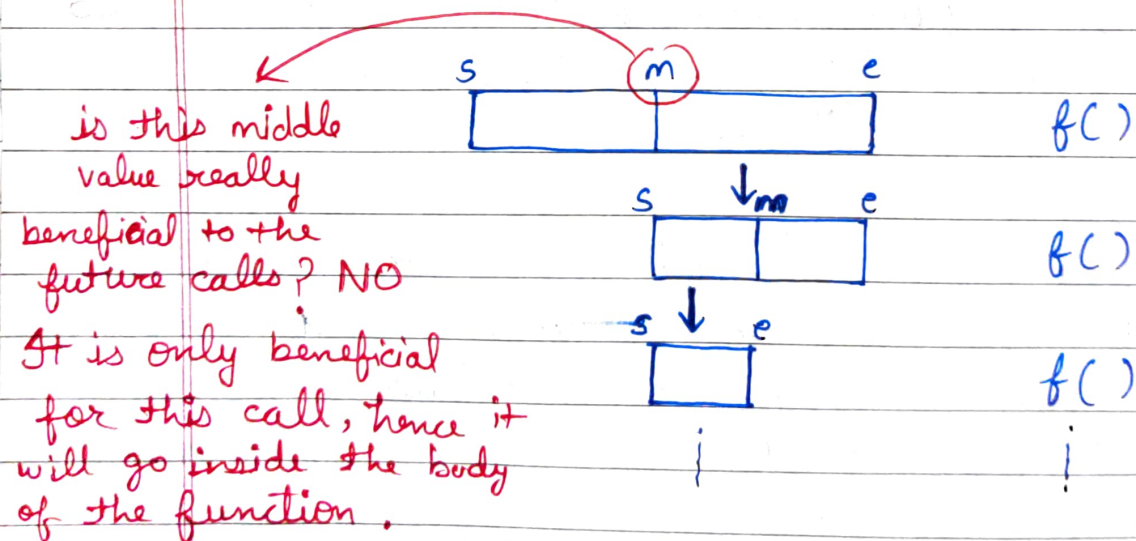 s m e
is this middle f( )
value really
s m e
beneficial to the f( )
future calls? NO
s e
It is only beneficial
for this call, hence it f( )
will go inside the body
of the function.